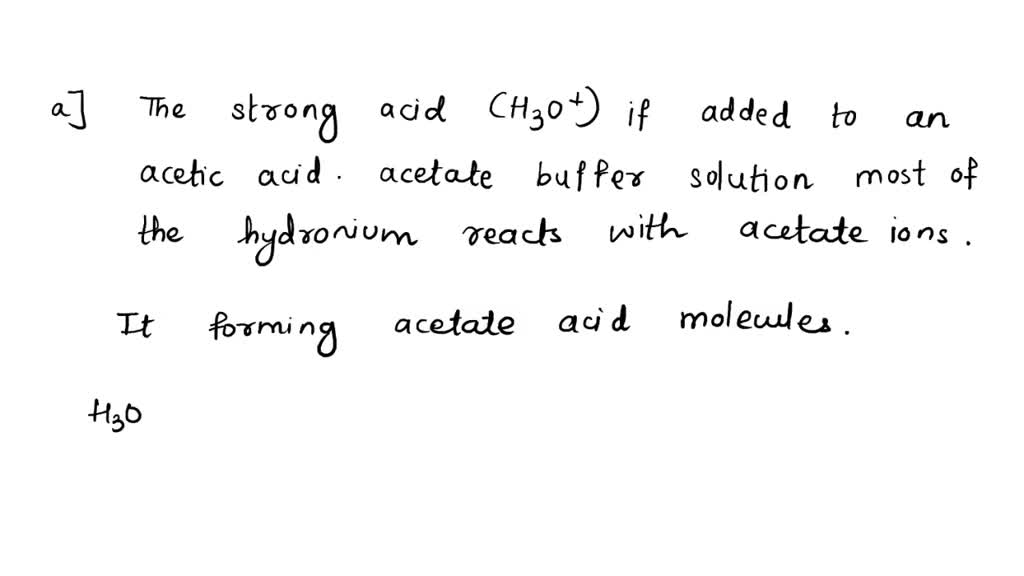 a] The strong acid (H₃O⁺) if added to an
acetic acid. acetate buffer solution most of
the hydronium reacts with acetate ions.
It forming acetate acid molecules.
H₃O